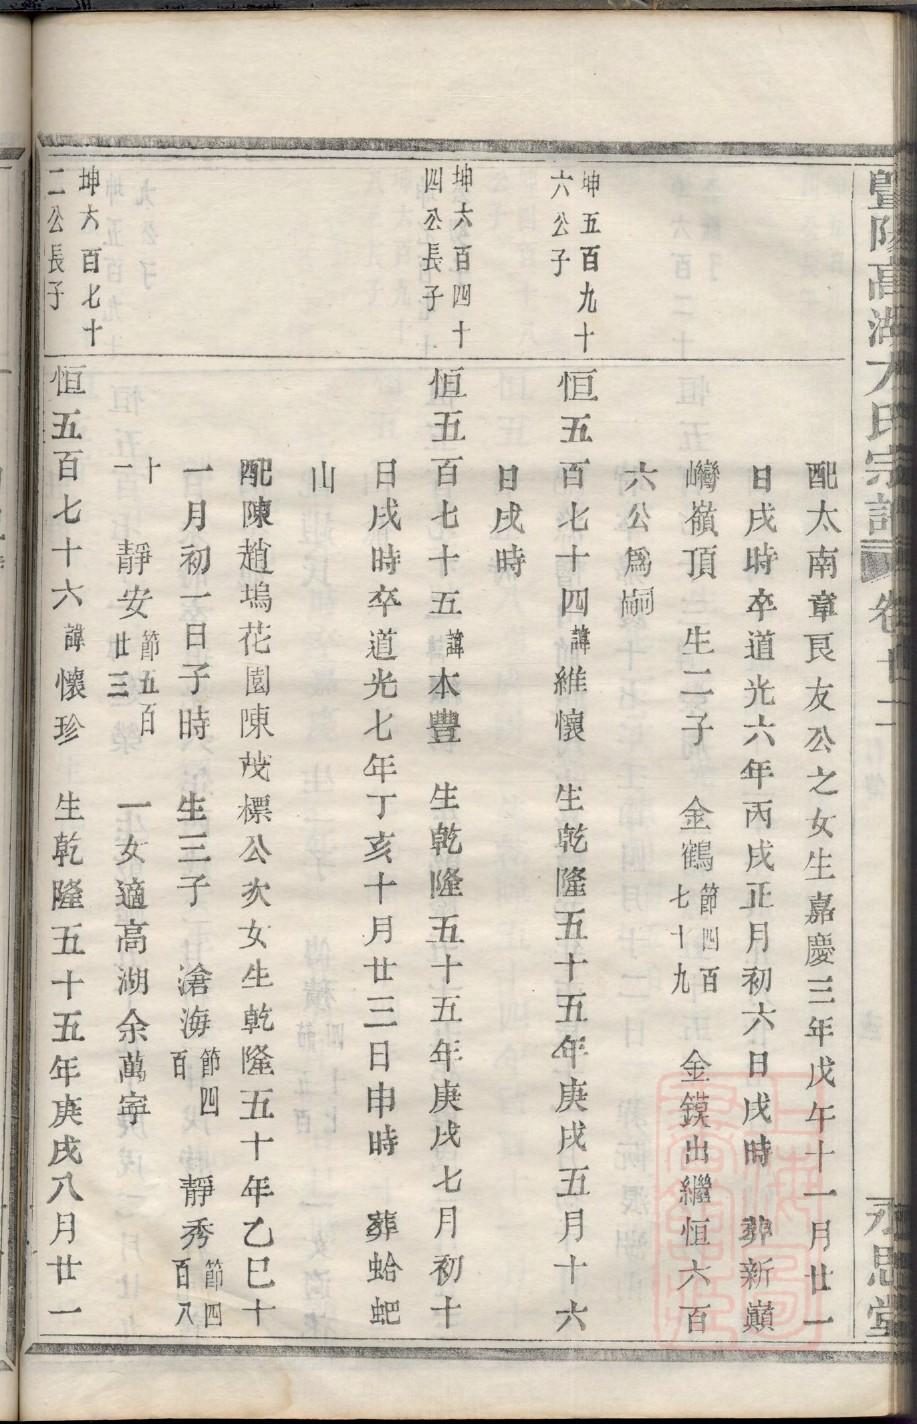 暨陽高湖方氏宗譜
卷廿二
永思堂
配太南章良友公之女生嘉慶三年戊午十一月廿一
日戌時卒道光六年丙戌正月初六日戌時 葬新巔
巒嶺頂 生二子 金鶴節四百七十九 金鏌出繼恒六百
六公爲嗣
坤五百九十
六公子
恒五百七十四諱維懷 生乾隆五十五年庚戌五月十六
日戌時
坤六百四十
四公長子
恒五百七十五諱本豐 生乾隆五十五年庚戌七月初十
日戌時卒道光七年丁亥十月廿三日申時 葬蛤蚆
山
配陳趙塢花園陳茂標公次女生乾隆五十年乙巳十
一月初一日子時 生三子 滄海節四百 靜秀節四百八
十一 靜安節五百廿三 一女適高湖余萬寧
坤六百七十
二公長子
恒五百七十六諱懷珍 生乾隆五十五年庚戌八月廿一